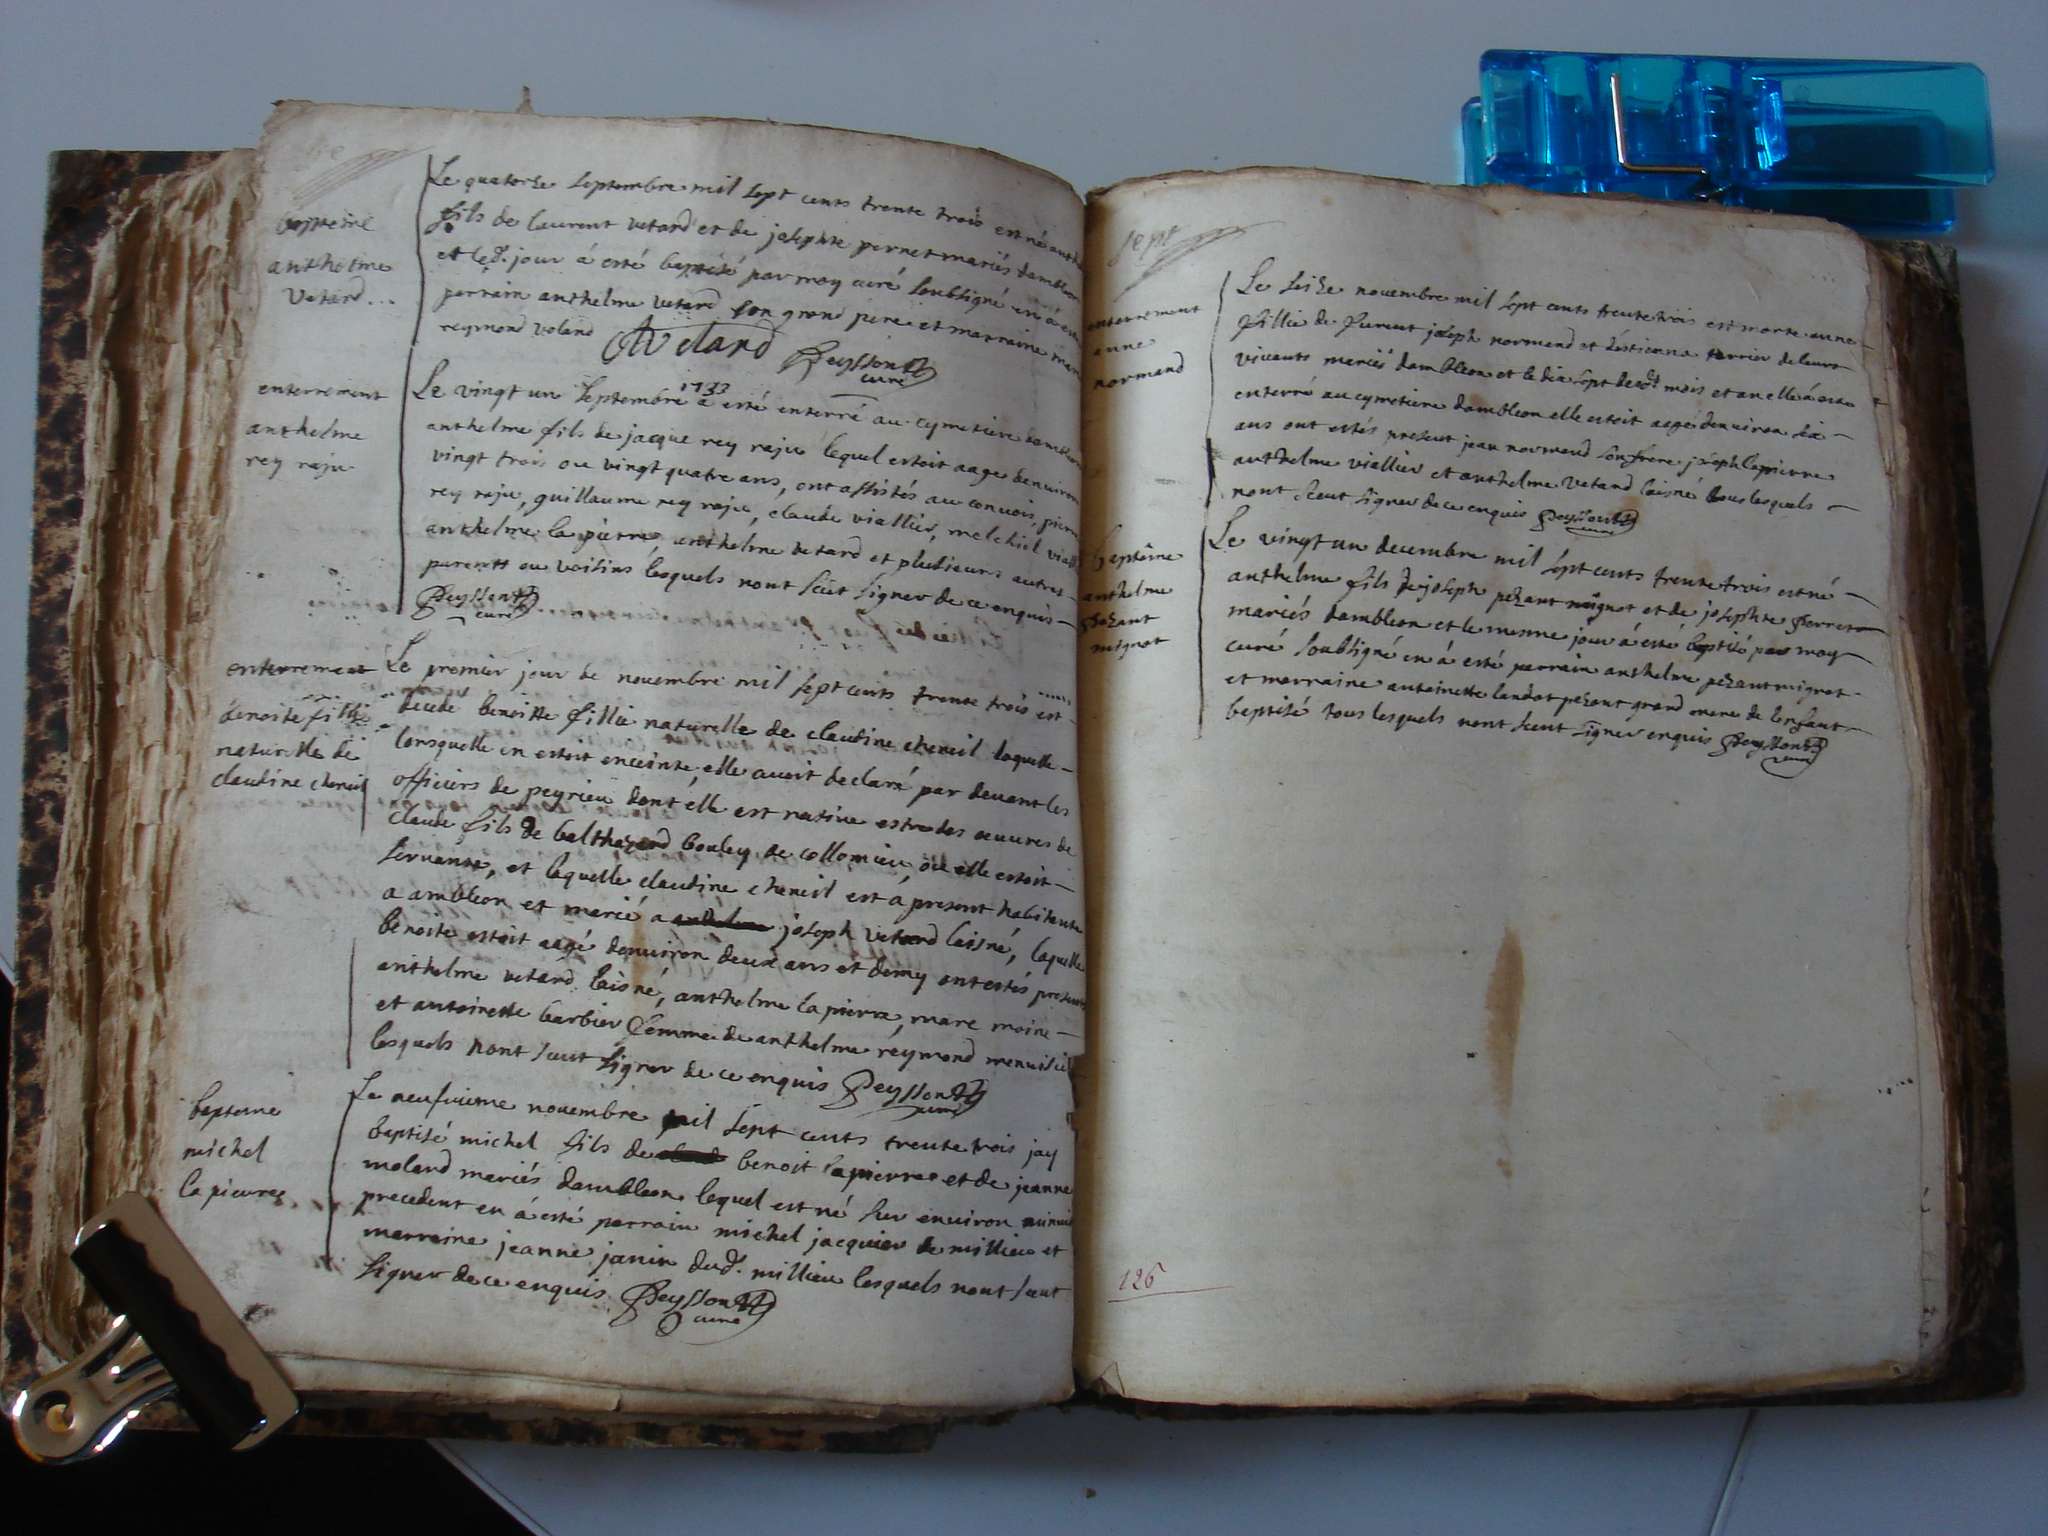 baptême
anthelme
Vetard...
Le quatorze septembre mil sept cents trente trois est né anth
fils de laurent vetard et de josephte pernet mariés dambleon
et led. jour á esté baptisé par moy curé soubsigné en á esté
parrain anthelme vetard son grand pere et marraine mar
reymond voland AVetard Peysson
curé
enterrement
anthelme
rey raju
Le vingt un septembre 1733 á esté enterré au cymetiere dambleon
anthelme fils de jacque rey raju lequel estoit aage denuiron
vingt trois ou vingt quatre ans, ont assistés au conuois, pierre
rey raju, guillaume rey raju, claude viallier, melchiol viall
anthelme la pierre, anthelme vetard et plusieurs autres
parents ou voisins lesquels nont sceut signer de ce enquis
Peysson
curé
enterrement
benoite fillie
naturelle de
claudine cheneil
Le premier jour de nouembre mil sept cents trente trois est
decedé benoitte fillie naturelle de claudine cheneil laquelle
lorsquelle en estoit enceinte elle auoit declaré par deuant les
officiers de peyrieu dont elle est natiue estre des œuures de
claude fils de balthazard bouley de collomieu, ou elle estoit
seruante, et laquelle claudine cheneil est á present habitante
a ambleon et marié a joseph vetard laisné, laquelle
benoite estoit aagé denuiron deux ans et demy ont estés presents
anthelme vetard laisné, anthelme la pierre, marc moine
et antoinette barbier femme de anthelme reymond menuisier
lesquels nont sceut signer de ce enquis Peysson
curé
bapteme
michel
la pierre
Le neufuieme nouembre mil sept cents trente trois jay
baptisé michel fils de benoit la pierre et de jeanne
molard mariés dambleon lequel est né sur enuiron minuit
precedent en á esté parrain michel jacquier de millieu et
marraine jeanne janin dud. millieu lesquels nont sceut
signer de ce enquis Peysson
curé
sept
enterrement
anne
normand
Le seize nouembre mil sept cents trente trois est morte anne
fillie de joseph normand et destienna terrier de leurs
viuants mariés dambleon et le dix sept desd. mois et an elle á esté
enterré au cymetiere dambleon elle estoit aagé denuiron six
ans ont estés present jean normand son frere joseph lapierre
anthelme viallier et anthelme vetard laisné tous lesquels
nont sceut signer de ce enquis Peysson
curé
baptême
anthelme
pezant
mignot
Le vingt un decembre mil sept cents trente trois est né
anthelme fils de joseph pezant mignot et de josephte perret
mariés dambleon et le mesme jour á esté baptisé par moy
curé soubsigné en á esté parrain anthelme pezant mignot
et marraine antoinette landot pezant grand mere de lenfant
baptisé tous lesquels nont sceut signer enquis Peysson
curé
126